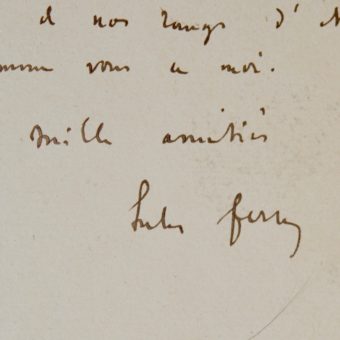 d nos rangs d'
vous a moi.
Mille amitiés
Jules Ferry